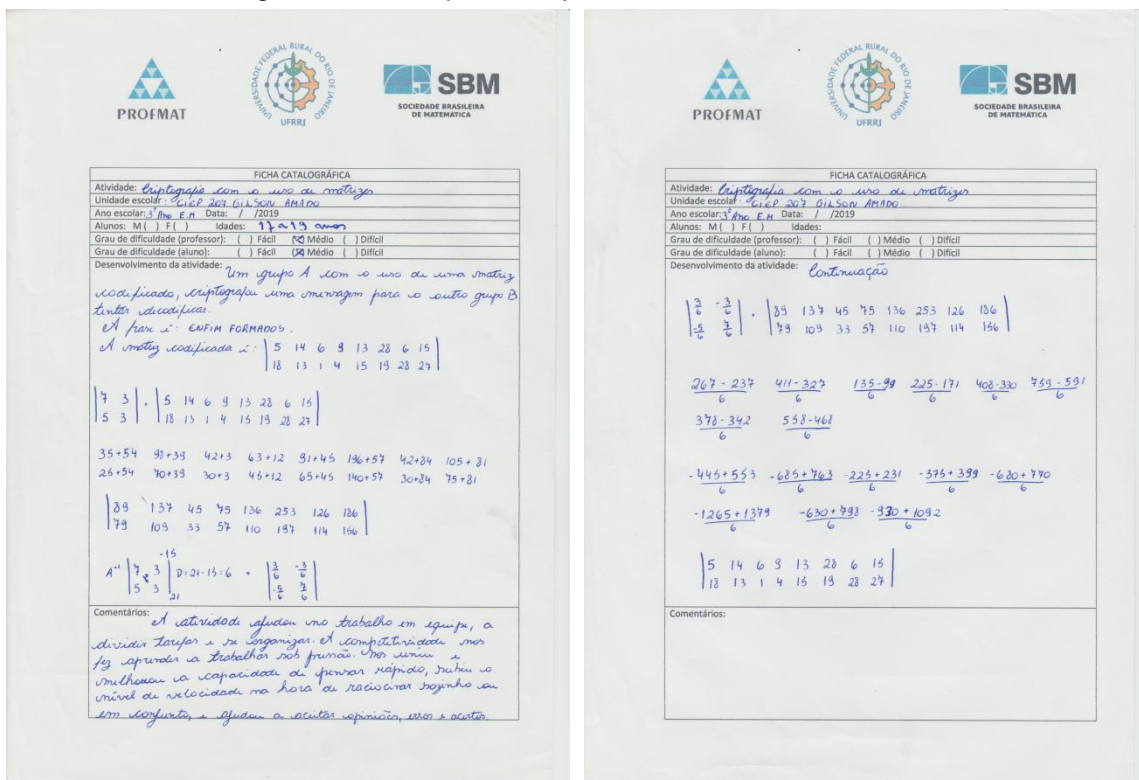 PROFMAT
UNIVERSIDADE FEDERAL RURAL DO RIO DE JANEIRO
UFRRJ
SBM
SOCIEDADE BRASILEIRA
DE MATEMÁTICA
FICHA CATALOGRÁFICA
Atividade: Criptografia com o uso de matrizes
Unidade escolar: CIEP 207 GILSON AMADO
Ano escolar: 3º Ano E.M Data: / /2019
Alunos: M ( ) F ( ) Idades: 17 a 19 anos
Grau de dificuldade (professor): ( ) Fácil (X) Médio ( ) Difícil
Grau de dificuldade (aluno): ( ) Fácil (X) Médio ( ) Difícil
Desenvolvimento da atividade: Um grupo A com o uso de uma matriz
codificado, criptografou uma mensagem para o outro grupo B
tentar decodificar.
A frase é: ENFIM FORMADOS.
A matriz codificada é: | 5 14 6 9 13 28 6 15 |
| 18 13 1 4 15 19 28 27 |
| 7 3 | . | 5 14 6 9 13 28 6 15 |
| 5 3 | | 18 13 1 4 15 19 28 27 |
35+54 98+39 42+3 63+12 91+45 196+57 42+84 105+81
25+54 70+39 30+3 45+12 65+45 140+57 30+84 75+81
| 89 137 45 75 136 253 126 186 |
| 79 109 33 57 110 197 114 156 |
-15
A⁻¹ | 7 3 | D=21-15=6 = | 3/6 -3/6 |
| 5 3 | 21 | -5/6 7/6 |
Comentários: A atividade ajudou no trabalho em equipe, a
dividir tarefas e se organizar. A competitividade nos
fez aprender a trabalhar sob pressão. Nos uniu e
melhorou a capacidade de pensar rápido, subiu o
nível de velocidade na hora de raciocinar sozinho ou
em conjunto, e ajudou a aceitar opiniões, erros e acertos.
PROFMAT
UNIVERSIDADE FEDERAL RURAL DO RIO DE JANEIRO
UFRRJ
SBM
SOCIEDADE BRASILEIRA
DE MATEMÁTICA
FICHA CATALOGRÁFICA
Atividade: Criptografia com o uso de matrizes
Unidade escolar: CIEP 207 GILSON AMADO
Ano escolar: 3º Ano E.M Data: / /2019
Alunos: M ( ) F ( ) Idades:
Grau de dificuldade (professor): ( ) Fácil ( ) Médio ( ) Difícil
Grau de dificuldade (aluno): ( ) Fácil ( ) Médio ( ) Difícil
Desenvolvimento da atividade: Continuação
| 3/6 -3/6 | . | 89 137 45 75 136 253 126 186 |
| -5/6 7/6 | | 79 109 33 57 110 197 114 156 |
267-237/6 411-327/6 135-99/6 225-171/6 408-330/6 759-591/6
378-342/6 558-468/6
-445+553/6 -685+763/6 -225+231/6 -375+399/6 -680+770/6
-1265+1379/6 -630+798/6 -930+1092/6
| 5 14 6 9 13 28 6 15 |
| 18 13 1 4 15 19 28 27 |
Comentários: